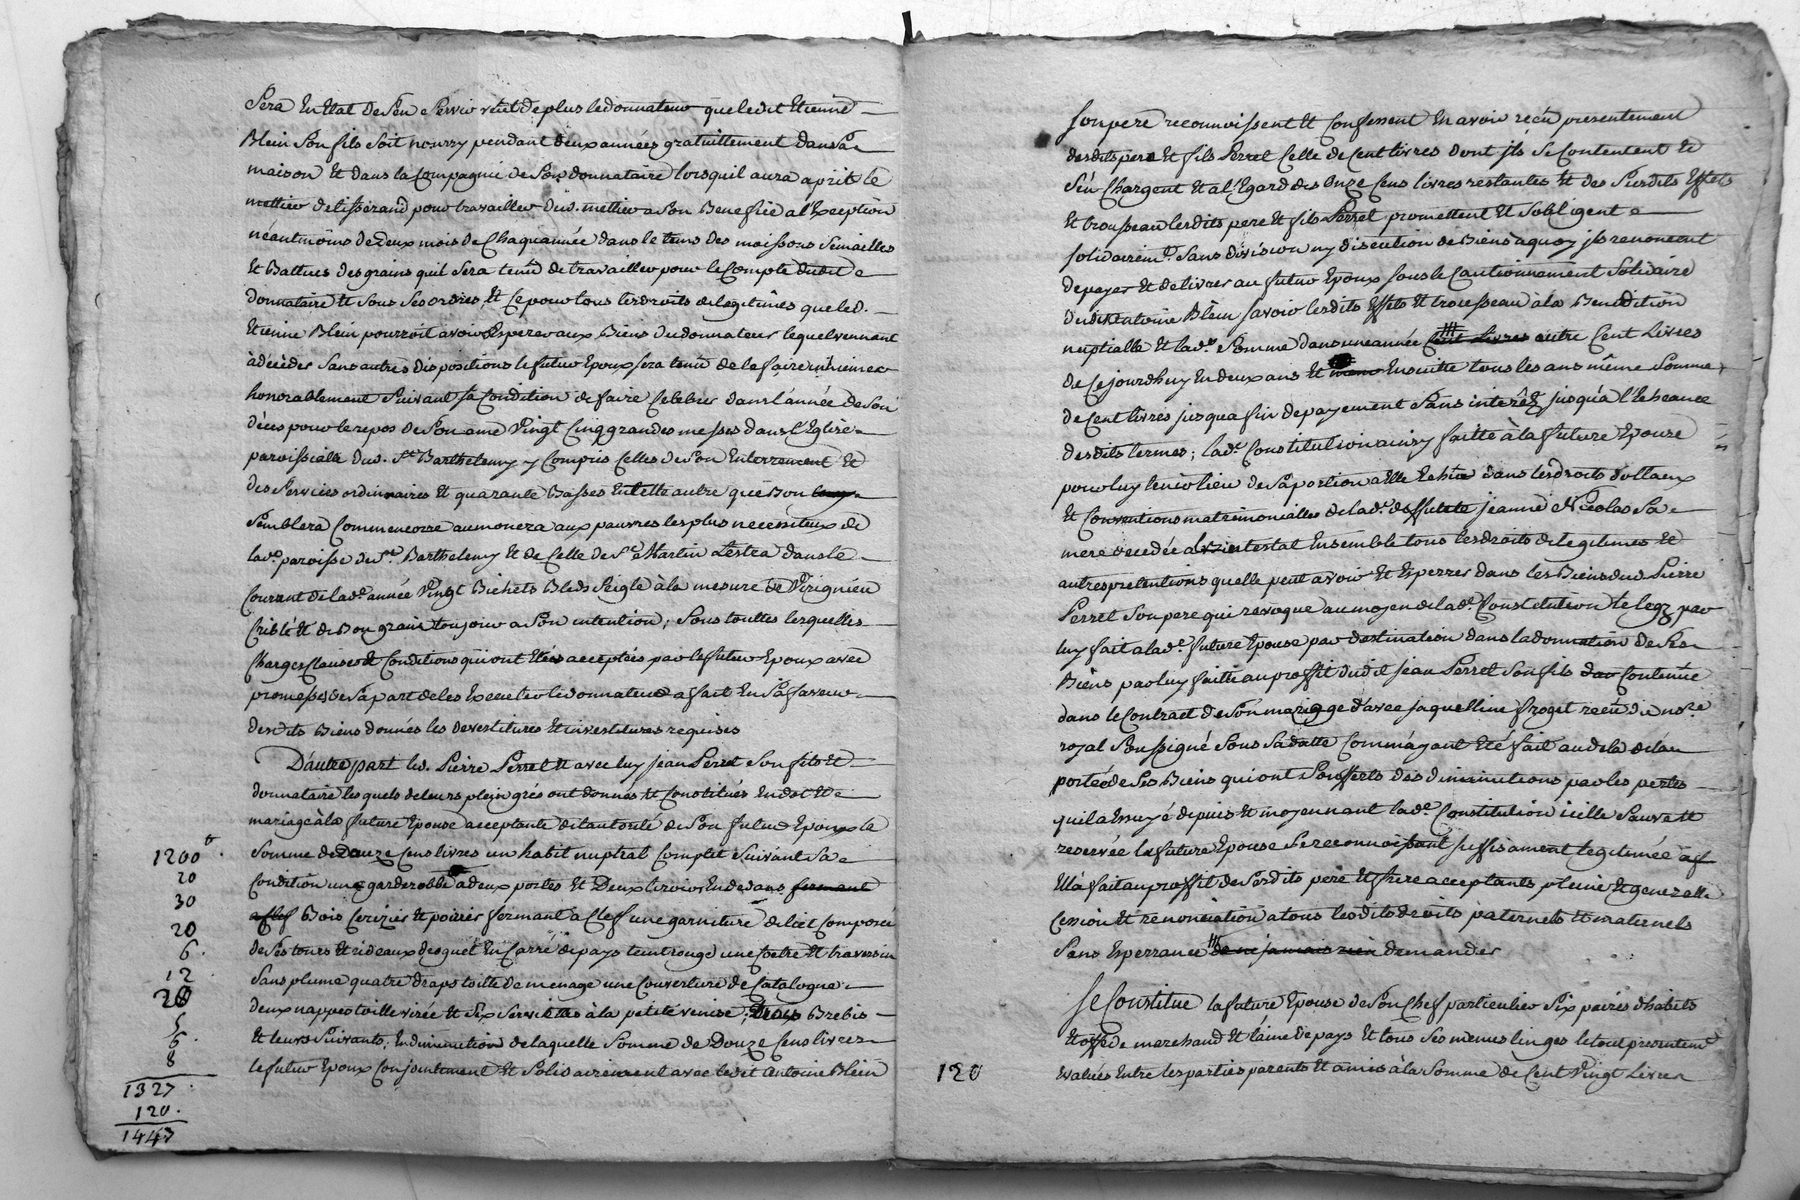 Sera En Etat de S'en Servir veut de plus le donnateur que le dit Etienne
Blein Son fils Soit nourry pendant deux années gratuittement dans Sa
maison Et dans la Compagnie de Son donnataire lorsquil aura aprit le
mettier de tisserand pour travailler dud. mettier a Son Benefice a l'Exception
néantmoins de deux mois de Chaque année dans le tems des moissons Semailles
Et Battues des grains quil Sera tenu de travailler pour le Compte dudit
donnataire Et Sous Ses ordres, Et Ce pour tous les droits de legitimes que led.
Etienne Blein pourroit avoir Esperer aux Biens du donnateur lequel vennant
à décéder Sans autres dispositions le futur Epoux sera tenu de le faire inhumer
honorablement Suivant Sa Condition de faire Celebrer dans l'année de Son
décés pour le repos de Son ame Vingt Cinq grandes messes dans l'Eglise
paroissialle dud. St Barthelemy y Compris Celles de Son Enterrement Et
des Services ordinnaires Et quarante Basses En telle autre que Bon
Semblera Comm'encore aumonera aux pauvres les plus necessiteux de
lad. paroisse de St. Barthelemy Et de Celle de St Martin Lestra dans le
Courant de lad. année Vingt Bichets Bled Seigle à la mesure de Virignieu
Criblé Et de Bon grain toujour a Son intention; Sous touttes lesquelles
Charges Clauses Et Conditions qui ont Etées acceptées par le futur Epoux avec
promesse de Sa part de les Executer le donnateur a fait En Sa faveur
desdits Biens donnés les devestitures Et investitures requises
D'autre part led. Pierre Perrel Et avec luy jean Perrel Son fils Et
donnataire lesquels de leurs plein grés ont donnés Et Constitués En dot Et
mariage à la future Epouse acceptante de l'autorité de Son futur Epoux la
1200tt. Somme de Douze Cens livres un habit nuptial Complet Suivant Sa
20 Condition une garderobbe a deux portes Et Deux tiroirs En dedans fermant
30 a clef Bois Cerizier Et poirier fermant a Clef une garniture de lict Composée
20 de Ses tours Et rideaux En Carré de pays teint rouge une Coetre Et traversin
6. Sans plume quatre draps toille de menage une Couverture de Catalogne
12 deux nappes toille virée Et Six Serviettes à la petite venise; Deux Brebis
20 Et leurs Suivants; En diminution de laquelle Somme de Douze Cens livres
5 le futur Epoux Conjointement Et Solidairement avec ledit Antoine Blein
6.
8
1327
120.
1447
Son pere reconnoissent Et Confessent En avoir réçu presentement
desdits pere Et fils Perrel Celle de Cent livres dont ils Se Contentent Et
S'en Chargent Et a l'Egard des Onze Cens livres restantes Et des Susdits Effets
Et trousseau lesdits pere Et fils Perrel promettent Et S'obligent
solidairemt. Sans division ny discution de Biens à quoy ils renoncent
de payer Et delivrer au futur Epoux Sous le Cautionnement Solidaire
dudit Antoine Blein Savoir lesdits Effets Et trousseau à la Benediction
nuptialle Et lad.e Somme dans une année Cent Livres autre Cent Livres
de Ce jourdhuy En deux ans Et Ensuitte tous les ans même Somme
de Cent livres jusqua fin de payement Sans interêts jusqu'à l'Echeance
desdits termes; lad.e Constitution ainsy faitte à la future Epouze
pour luy tenir lieu de Sa portion a Elle Echue dans les droits dottaux
Et Conventions matrimonialles de lad.e deffunte jeanne Nicolas Sa
mere decedée ab intestat Ensemble tous les droits de legitimes Et
autres pretentions quelle peut avoir Et Esperer dans les Biens dud. Pierre
Perrel Son pere qui revoque au moyen de lad.e Constitution le legs par
luy fait a lad.e future Epouse par destination dans la donnation de Ses
Biens par luy faitte au proffit dudit jean Perrel Son fils Contenue
dans le Contract de Son mariage d'avec jaquelline Froget réçu du no.re
royal Soussigné Sous Sa datte Comm'ayant Eté fait au dela de la
portée de Ses Biens qui ont Soufferts des diminutions par les pertes
quil a Essuyé depuis Et moyennant lad.e Constitution icelle Sauve Et
reservée la future Epouse Se reconnoissant suffisament legitimée a
Et a fait au proffit de Sesdits pere Et frere acceptants pleine Et generalle
Cession Et renonciation a tous lesdits droits paternels Et maternels
Sans Esperrance de ne jamais rien demander
Se Constitue la future Epouse de Son Chef particulier Six paires d'habits
Etoffe de marchand Et laine de pays Et tous Ses menus linges le tout presentemt
120 Evalués Entre les parties parents Et amis à la Somme de Cent Vingt Livres